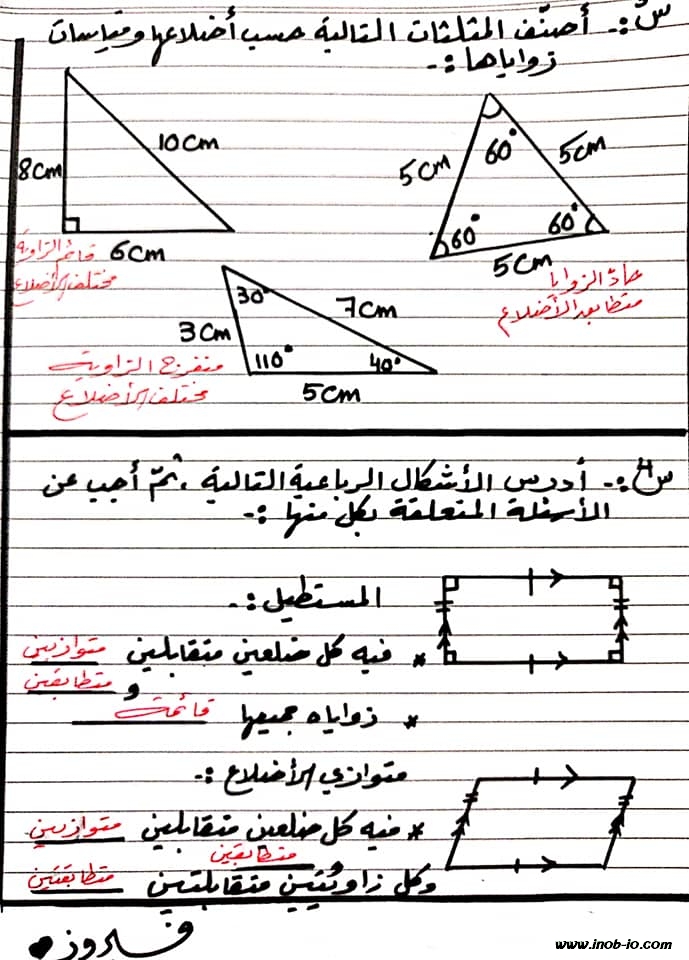 س:- أصنّف المثلثات التالية حسب أضلاعها وقياسات
زواياها:-
10cm
8cm
6cm
قائم الزاوية
مختلف الأضلاع
60°
5cm
5cm
60°
60°
5cm
حادّ الزوايا
متطابق الأضلاع
30°
7cm
3cm
110°
40°
5cm
منفرج الزاوية
مختلف الأضلاع
س4:- أدرس الأشكال الرباعية التالية، ثمّ أجيب عن
الأسئلة المتعلقة بكل منها:-
المستطيل:-
* فيه كل ضلعين متقابلين متوازيين
و متطابقين
* زواياه جميعها قائمة
متوازي الأضلاع:-
* فيه كل ضلعين متقابلين متوازيين
و متطابقين
وكل زاويتين متقابلتين متطابقتين
فيروز
www.inob-io.com